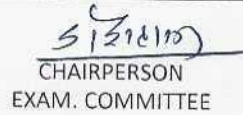 CHAIRPERSON
EXAM. COMMITTEE